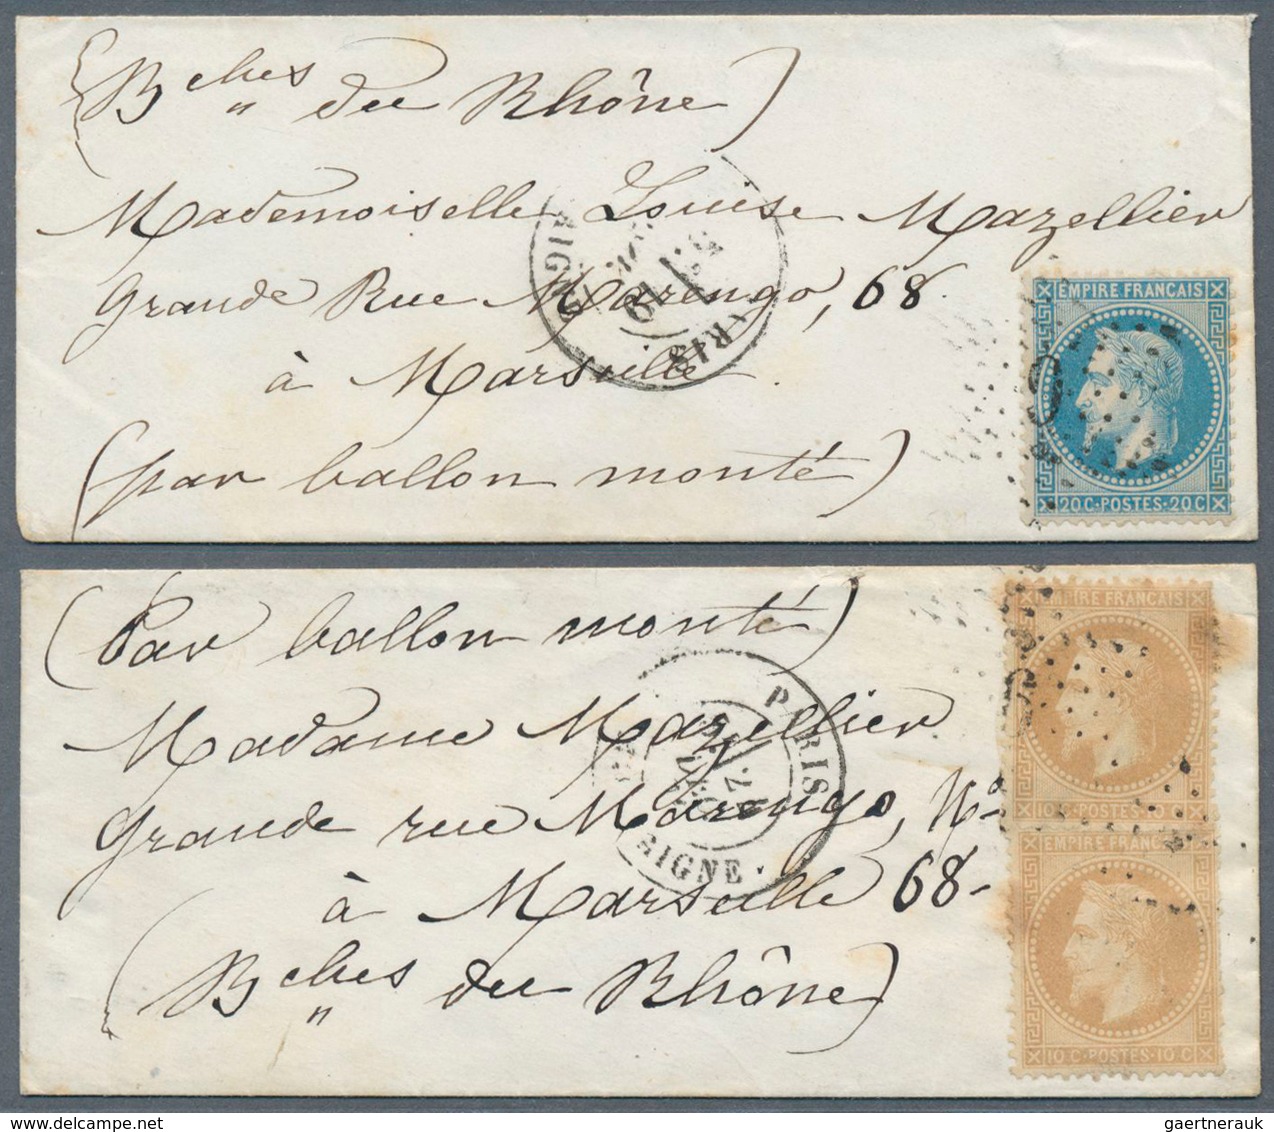 (Bches du Rhône)
Mademoiselle Louise Mazellier
Grande Rue Marengo, 68
à Marseille
(par ballon monté)
EMPIRE FRANÇAIS
20 C · POSTES · 20 C
(Par ballon monté)
Madame Mazellier
Grande rue Marengo, No
à Marseille 68-
(Bches du Rhône)
PARIS
EMPIRE FRANÇAIS
10 C · POSTES · 10 C
EMPIRE FRANÇAIS
10 C · POSTES · 10 C
gaertnerauk @ delcampe.net